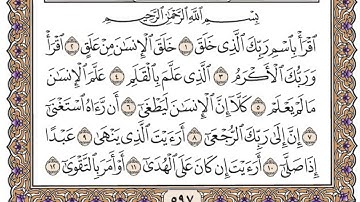 بِسْمِ اللَّهِ الرَّحْمَٰنِ الرَّحِيمِ
اقْرَأْ بِاسْمِ رَبِّكَ الَّذِي خَلَقَ ١ خَلَقَ الْإِنسَانَ مِنْ عَلَقٍ ٢ اقْرَأْ
وَرَبُّكَ الْأَكْرَمُ ٣ الَّذِي عَلَّمَ بِالْقَلَمِ ٤ عَلَّمَ الْإِنسَانَ
مَا لَمْ يَعْلَمْ ٥ كَلَّا إِنَّ الْإِنسَانَ لَيَطْغَىٰ ٦ أَن رَّآهُ اسْتَغْنَىٰ
٧ إِنَّ إِلَىٰ رَبِّكَ الرُّجْعَىٰ ٨ أَرَأَيْتَ الَّذِي يَنْهَىٰ ٩ عَبْدًا
إِذَا صَلَّىٰ ١٠ أَرَأَيْتَ إِن كَانَ عَلَى الْهُدَىٰ ١١ أَوْ أَمَرَ بِالتَّقْوَىٰ ١٢
٥٩٧